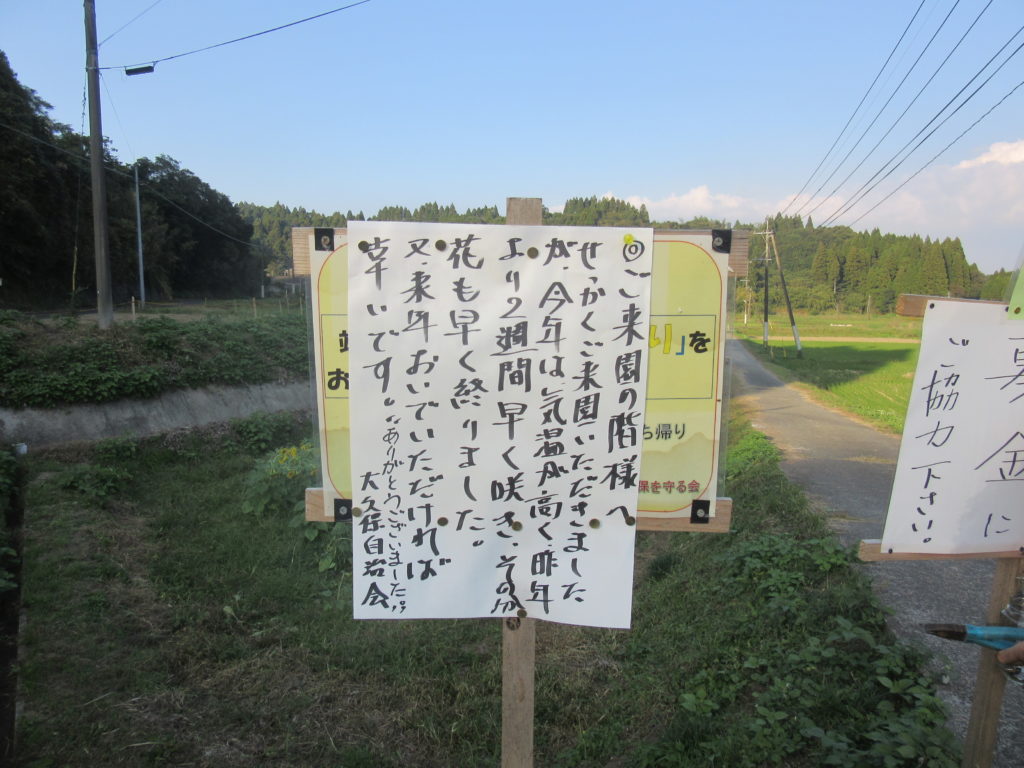 ◎ご来園の階様へ
せっかくご来園いただきました
が、今年は、気温が高く昨年
より2週間早く咲き、その分
花も早く終りました。
又来年おいでいただければ
幸いです。ありがとうございました。
大久保自治会
り」を
お
ち帰り
保を守る会
募金に
ご協力下さい。